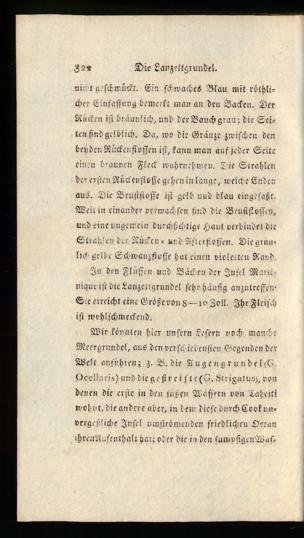 322 Die Lanzettgrundel.
nicht geschmückt. Ein schwaches Blau mit röthli-
cher Einfassung bemerkt man an den Backen. Der
Rücken ist bräunlich, und der Bauch grau; die Sei-
ten sind gelblich. Da, wo die Gränze zwischen den
beyden Rückenflossen ist, kann man auf jeder Seite
einen braunen Fleck wahrnehmen. Die Strahlen
der ersten Rückenflosse gehen in lange, weiche Enden
aus. Die Brustflosse ist gelb und blau eingefaßt.
Weit in einander verwachsen sind die Brustflossen,
und eine ungemein durchsichtige Haut verbindet die
Strahlen der Rücken- und Afterflossen. Die grün-
lich gelbe Schwanzflosse hat einen violetten Rand.
In den Flüssen und Bächen der Insel Marti-
nique ist die Lanzettgrundel sehr häufig anzutreffen.
Sie erreicht eine Größe von 8—10 Zoll. Ihr Fleisch
ist wohlschmeckend.
Wir könnten hier unsern Lesern noch manche
Meergrundel, aus den verschiedensten Gegenden der
Welt anführen; z. B. die Augengrundel (G.
Ocellaris) und die gestreifte (G. Strigatus), von
denen die erste in den süßen Wassern von Taheiti
wohnt, die andere aber, in dem diese durch Cook un-
vergeßliche Insel umströmenden friedlichen Ocean
ihren Aufenthalt hat; oder die in den sumpfigen Was-